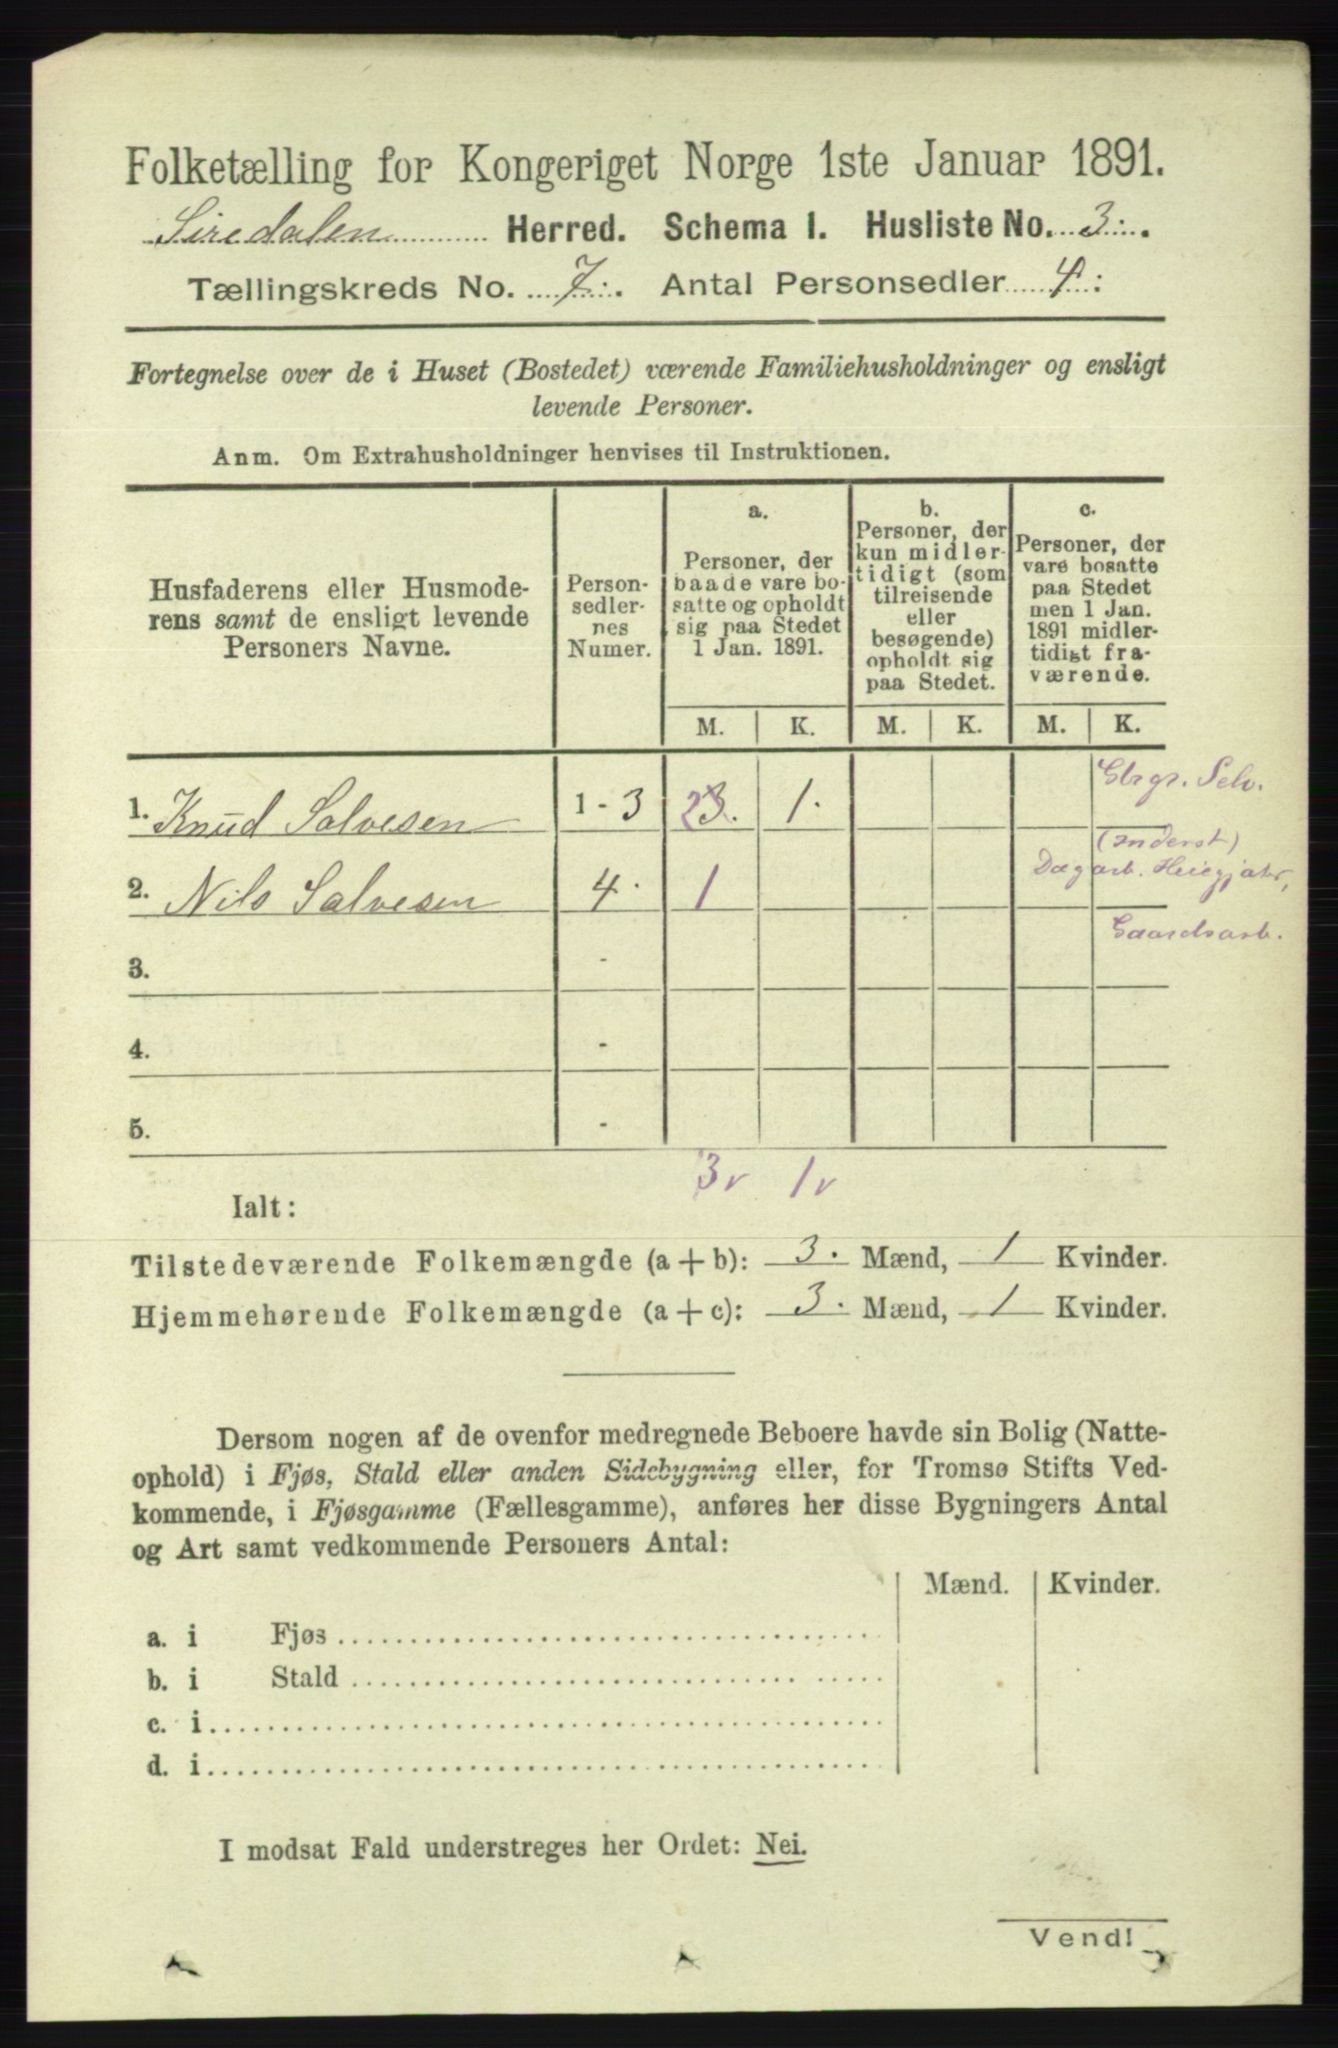 Folketælling for Kongeriget Norge 1ste Januar 1891.
Siredalen Herred. Schema I. Husliste No. 3.
Tællingskreds No. 7. Antal Personsedler 4.
Fortegnelse over de i Huset (Bostedet) værende Familiehusholdninger og ensligt
levende Personer.
Anm. Om Extrahusholdninger henvises til Instruktionen.
Husfaderens eller Husmode-
rens samt de ensligt levende
Personers Navne.
Person-
sedler-
nes
Numer.
a.
Personer, der
baade vare bo-
satte og opholdt
sig paa Stedet
1 Jan. 1891.
b.
Personer, der
kun midler-
tidigt (som
tilreisende
eller
besøgende)
opholdt sig
paa Stedet.
c.
Personer, der
vare bosatte
paa Stedet
men 1 Jan.
1891 midler-
tidigt fra-
værende.
M. K. M. K. M. K.
1. Knud Salvesen 1 - 3 23. 1. Gbrgr. Selv.
(inderst)
2. Nils Salvesen 4. 1 Dagarb. Heiegjæter,
Gaardsarb.
3. -
4. -
5. -
3v 1v
Ialt:
Tilstedeværende Folkemængde (a + b): 3. Mænd, 1 Kvinder.
Hjemmehørende Folkemængde (a + c): 3. Mænd, 1 Kvinder.
Dersom nogen af de ovenfor medregnede Beboere havde sin Bolig (Natte-
ophold) i Fjøs, Stald eller anden Sidebygning eller, for Tromsø Stifts Ved-
kommende, i Fjøsgamme (Fællesgamme), anføres her disse Bygningers Antal
og Art samt vedkommende Personers Antal:
Mænd. Kvinder.
a. i Fjøs
b. i Stald
c. i
d. i
I modsat Fald understreges her Ordet: Nei.
Vend!